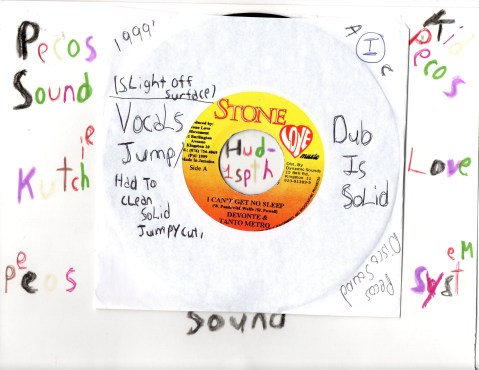 Pecos
Sound
Kutchie
Peecos
1999'
(S,Light off
Surface)
Vocals
Jump/
Had To
clean
Solid
Jumpy cut,
STONE
LOVE
music
Hud-
1spth
Side A
I CAN'T GET NO SLEEP
DEVONTE &
TANTO METRO
Dub
Is
SoLid
A
I
C
Kid
Pecos
Love
SysteM
Pecos
Disco Sound
Sound